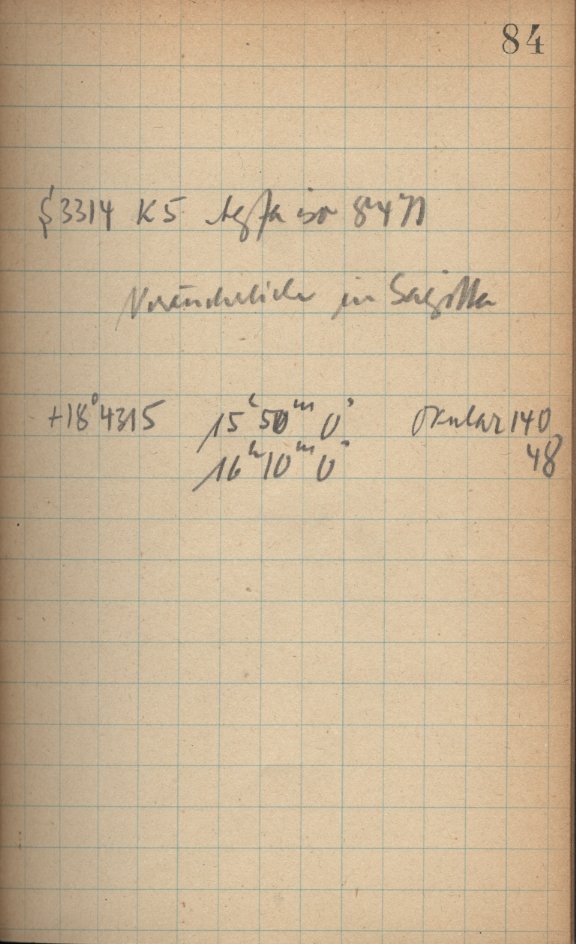 84
3314 K5 Agfa iso 8471
Veränderliche in Sagitta
+18°4315 15ʰ 50ᵐ 0ˢ Okular 140
16ʰ 10ᵐ 0ˢ 48